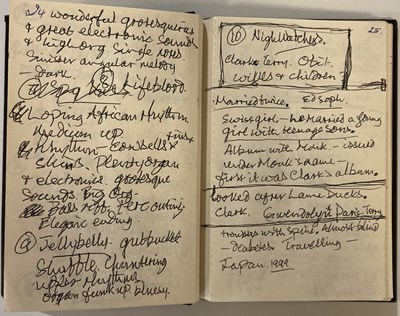 24 wonderful grotesqueries
& great electronic sound
& high org single notes.
Sinister angular melody
– Stark.
Lifeblood.
Loping African rhythm
up
Rhythm – cowbells &
Skins. Plenty organ
& electronics. grotesque
sounds. Big Org.
outing.
Elegaic ending.
Jellybelly. gutbucket
Shuffle. chuntering
rhythms
organ funk up bluesy.
25.
(10) Nightwatches.
Clark Terry. Obit.
wives & children?
Married twice. Ed Soph.
Swiss girl – he married a young
girl with teenage sons.
Album with Monk – issued
under Monk's name –
first it was Clark's album.
Looked after Lame Ducks.
Clark. Gwendolyn Paris Terry
troubles with spine. Almost blind
– diabetes. Travelling –
Japan. 1999